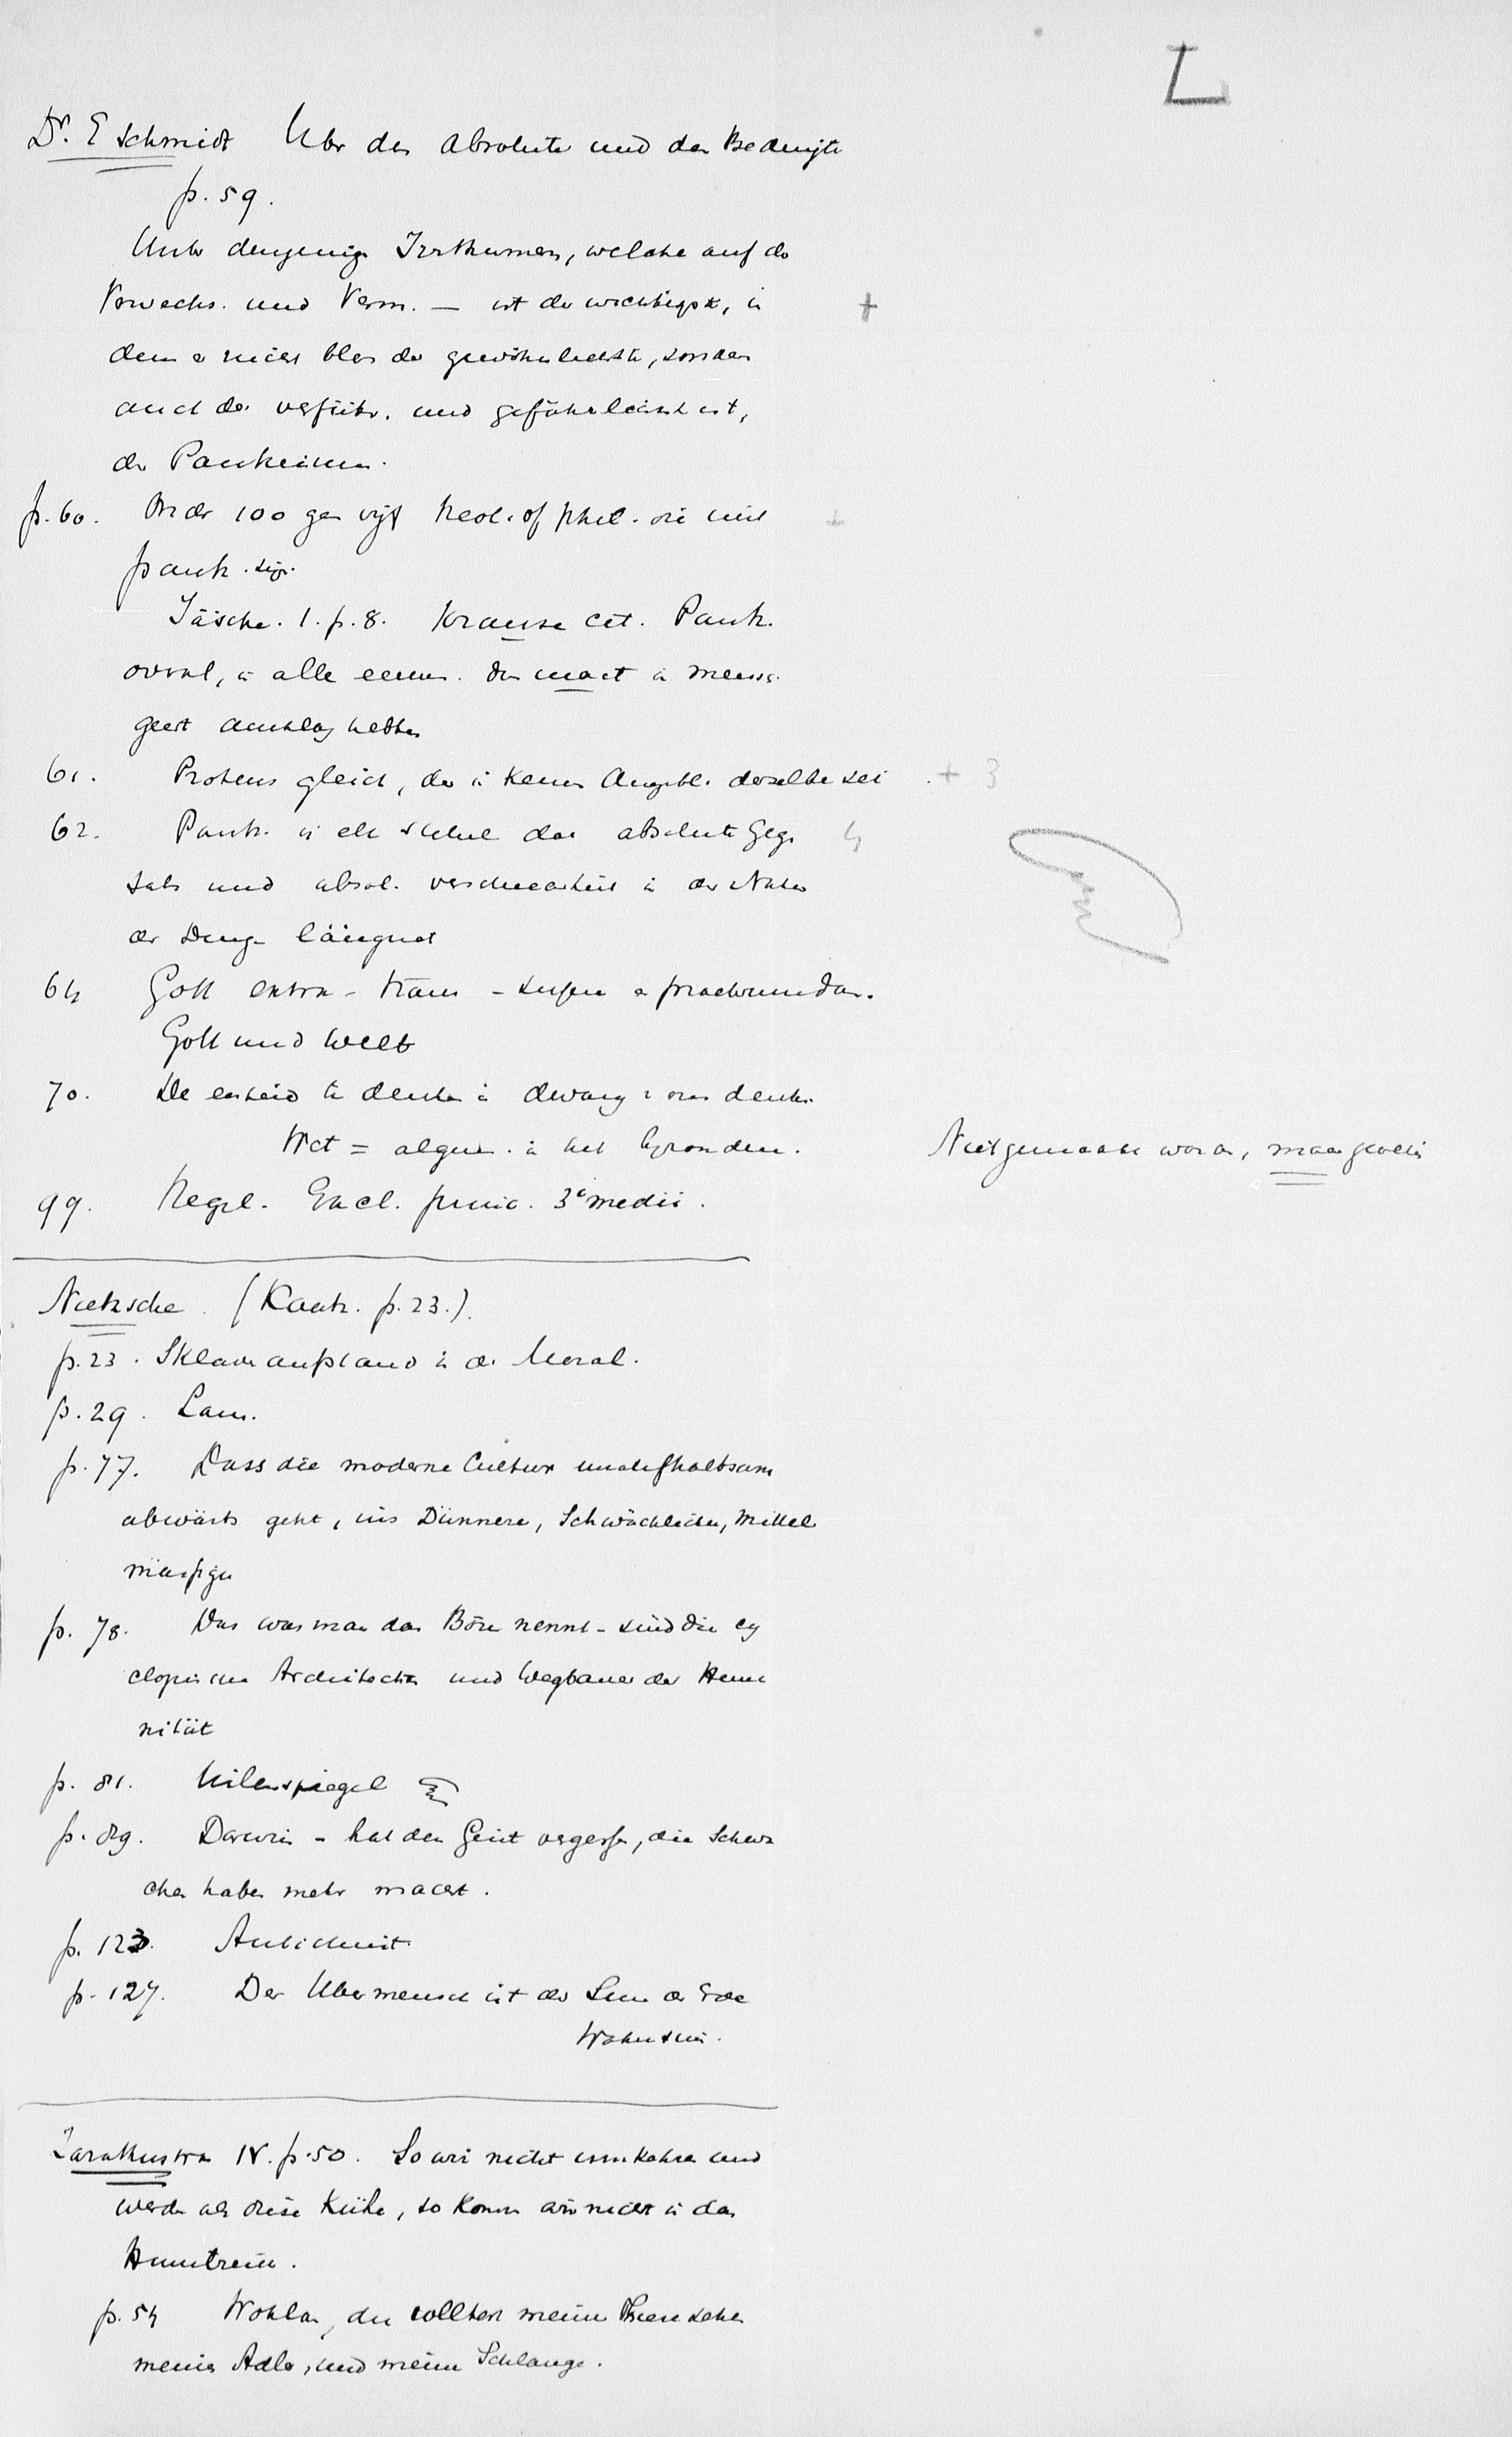 L
Dr. E Schmidt Uber das Absolute und das Bedingte
p. 59.
Unter denjenige Irrthumer, welche auf de
Verwechs. und Verm. — ist der wichtigste, in
dem er nicht blos der gewöhnlichste, sonder
auch der verführ. und gefährlichst ist,
der Pantheismus.
p. 60. Onder 100 geen vijf theol. of phil. die niet
panth. zijn.
Jäsche. 1. p. 8. Krause cet. Panth.
overal, in alle eeuw. dus moet in mensch.
geest aanleg hebben
61. Proteus gleich, der in keinem Augenbl. derselbe sei + 3
62. Panth. is elk stelsel das absolute Gegen
satz und absol. verschiedenheit in der Natur
der Dinge läugnet
64 Gott extra - trans - super a praemundan.
Gott und Welt
70. De eenheid te denken is dwang v ons denken.
Wet = algem. in het byzondere. Niet gemaakt worden, maar
99. Hegel. Excl. princ. 3e medii.
Nietzsche. (Kaatz. p. 23.).
p. 23. Sklavenaufstand in der Moral.
p. 29. Lam.
p. 77. Dass die moderne Cultur unaufhaltsam
abwärts geht, ins Dünnere, Schwächliche, Mittel
mässige
p. 78. Das was man das Böse nennt - sind die cy
clopischen Architecten und Wegbauer der Huma
nität
p. 81. Uilenspiegel
p. 89. Darwin - hat den Geist vergessen, die Schwa
chen haben mehr macht.
p. 123. Antichrist
p. 127. Der Ubermensch ist der Sinn der Erde
Wahnsinn.
Zarathustra IV. p. 50. So wir nicht umkehren und
werden als diese Kühe, so kommen wir nicht in das
Himmelreich.
p. 54 Wohlan, du solltest meine Thiere sehen
meinen Adler, und meine Schlange.